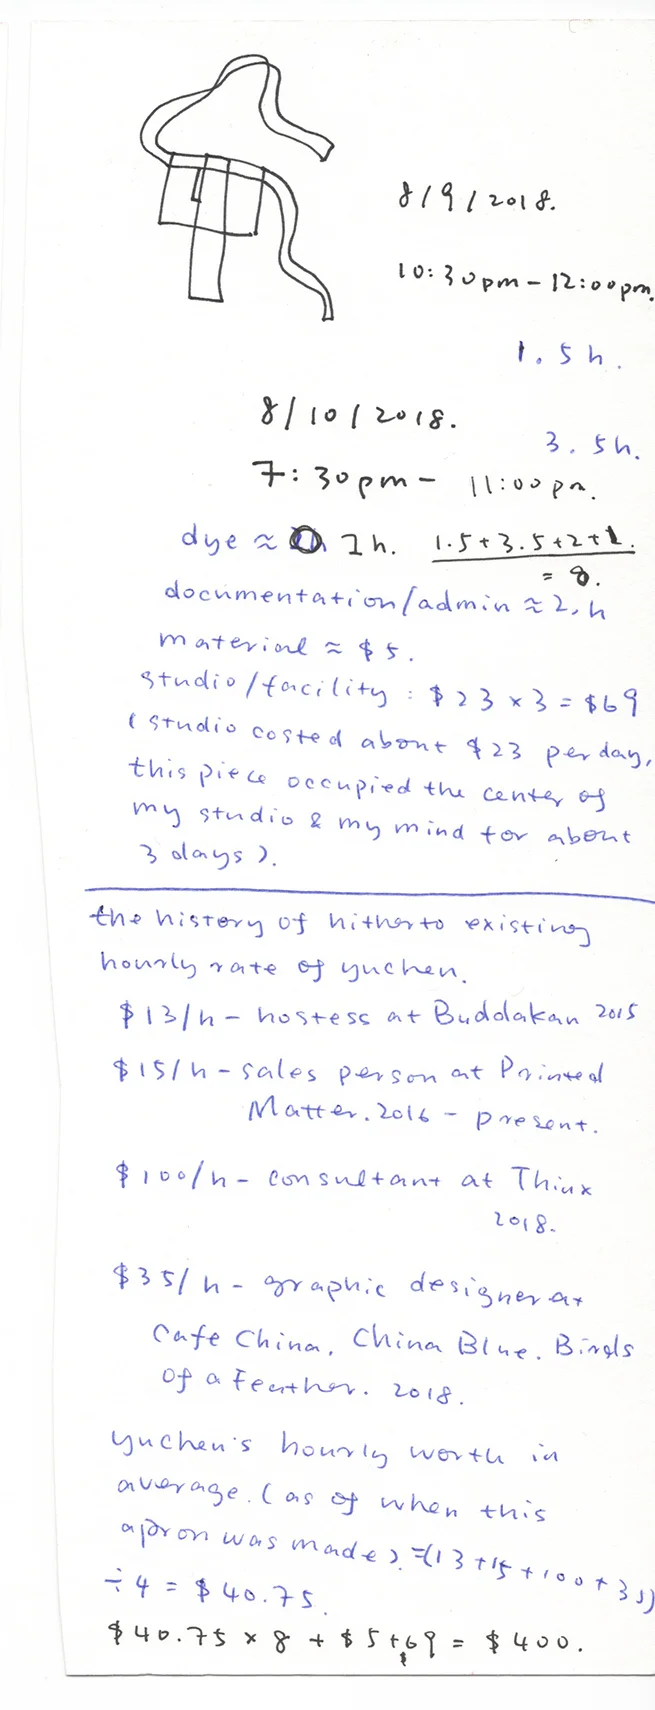 8/9/2018.
10:30pm - 12:00pm.
1.5h.
8/10/2018.
3.5h.
7:30pm - 11:00pm.
dye ≈ 1h. 1.5+3.5+2+1.
= 8.
documentation/admin ≈ 2.h
material ≈ $5.
studio/facility : $23 x 3 = $69
(studio costed about $23 per day,
this piece occupied the center of
my studio & my mind for about
3 days).
the history of hitherto existing
hourly rate of yuchen.
$13/h - hostess at Buddakan 2015
$15/h - sales person at Printed
Matter. 2016 - present.
$100/h - consultant at Thinx
2018.
$35/h - graphic designer at
Cafe China, China Blue, Birds
of a Feather. 2018.
yuchen's hourly worth in
average. (as of when this
apron was made). =(13+15+100+35)
÷ 4 = $40.75.
$40.75 x 8 + $5+$69 = $400.